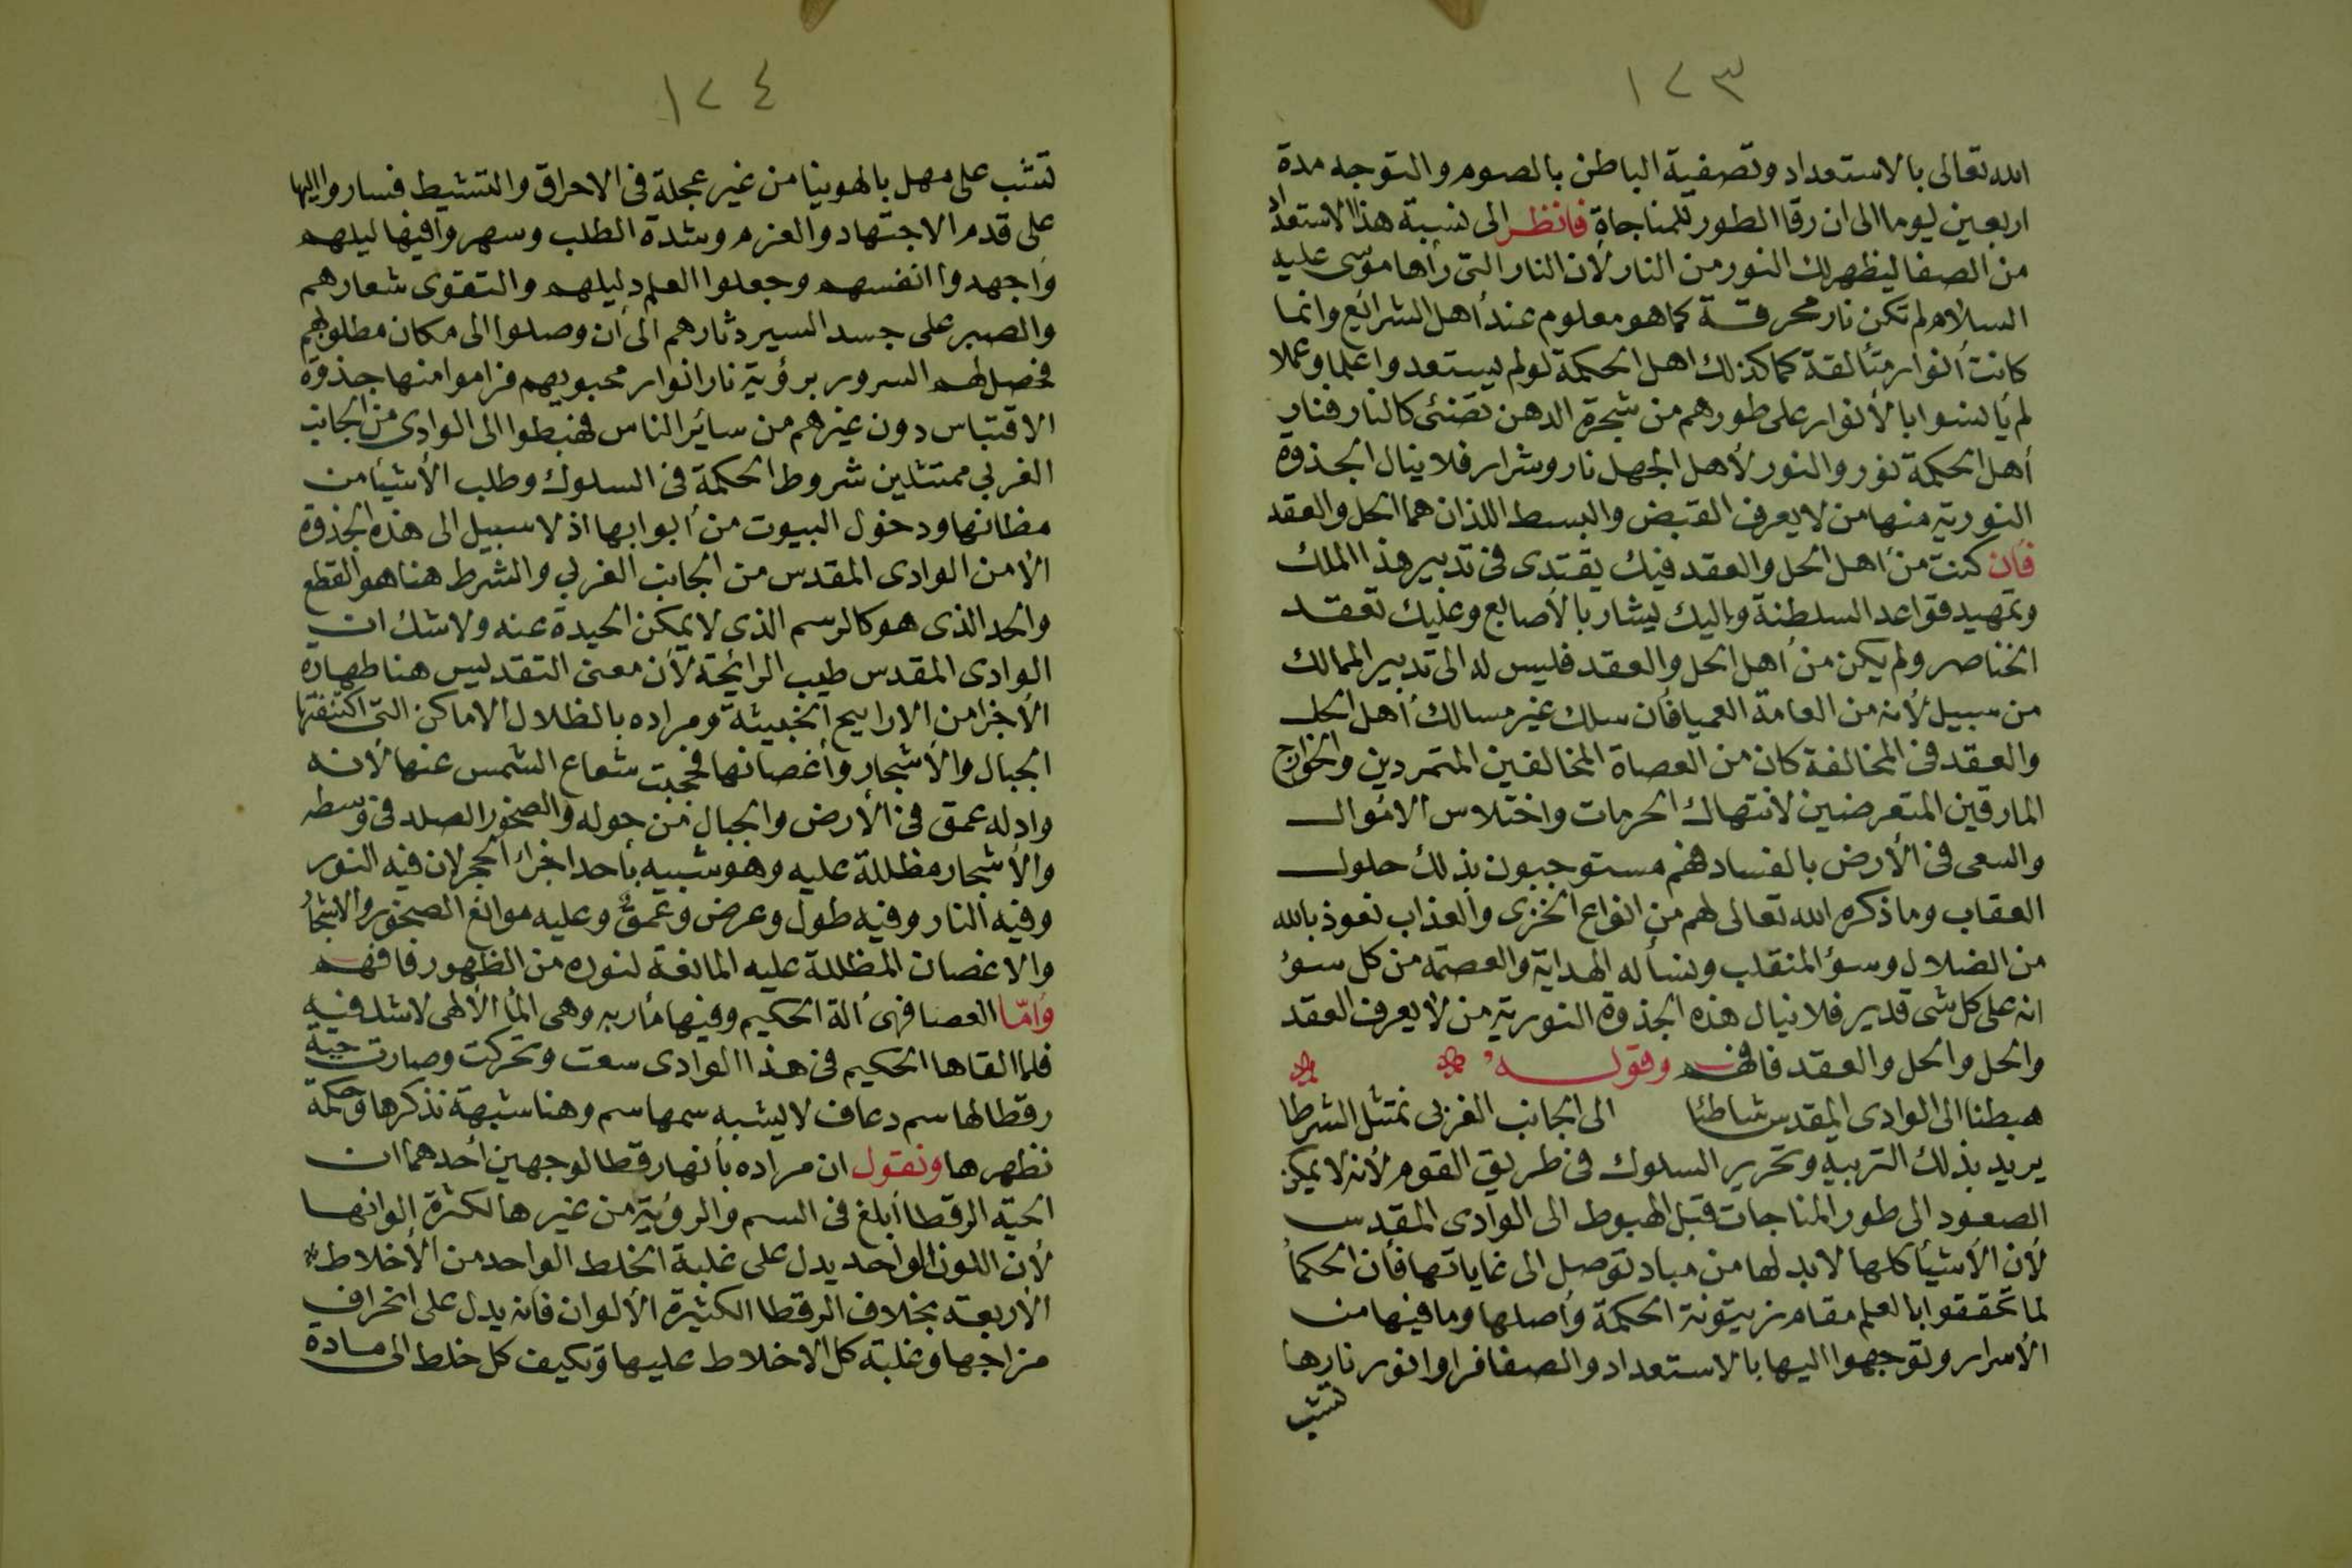 ١٢٣
الله تعالى بالاستعداد وتصفية الباطن بالصوم والتوجه مدة
اربعين يوما الى ان رقا الطور للمناجاة فانظر الى نسبة هذا الاستعداد
من الصفا ليظهر لك النور من النار لأن النار التى رأها موسى عليه
السلام لم تكن نار محرقة كما هو معلوم عند أهل الشرائع وانما
كانت أنوار متألقة كما كذلك اهل الحكمة لو لم يستعدوا علما وعملا
لم يأنسوا بالأنوار على طورهم من شجرة الدهن تضئى كالنار فنار
أهل الحكمة نور والنور لأهل الجهل نار وشرار فلا ينال الجذوة
النورية منها من لا يعرف القبض والبسط اللذان هما الحل والعقد
فأن كنت من أهل الحل والعقد فبك يقتدى فى تدبير هذا الملك
وتمهيد قواعد السلطنة واليك يشار بالأصابع وعليك تعقد
الخناصر ولم يكن من أهل الحل والعقد فليس له الى تدبير الممالك
من سبيل لأنه من العامة العميا فأن سلك غير مسالك أهل الحل
والعقد فى المخالفة كان من العصاة المخالفين المتمردين والخوارج
المارقين المتعرضين لانتهاك الحرمات واختلاس الاموال
والسعى فى الأرض بالفساد فهم مستوجبون بذلك حلول
العقاب وما ذكره الله تعالى لهم من انواع الخزى والعذاب نعوذ بالله
من الضلال وسؤ المنقلب ونسأله الهداية والعصمة من كل سوء
انه على كل شى قدير فلا ينال هذه الجذوة النورية من لا يعرف العقد
والحل والحل والعقد فافهم وقوله
هبطنا الى الوادى المقدس شاطئا الى الجانب الغربى نمتثل الشرطا
يريد بذلك التربيه وتحرير السلوك فى طريق القوم لأنه لا يمكن
الصعود الى طور المناجات قبل الهبوط الى الوادى المقدس
لأن الأشيأ كلها لابد لها من مباد توصل الى غاياتها فأن الحكمأ
لما تحققوا بالعلم مقام زيتونة الحكمة وأصلها وما فيها من
الأسرار وتوجهوا اليها بالاستعداد والصفا فراوا نور نارها
تشب
١٢٤
تشب على مهل بالهوينا من غير عجلة فى الاحراق والتشيط فساروا اليها
على قدم الاجتهاد والعزم وشدة الطلب وسهروا فيها ليلهم
واجهدوا انفسهم وجعلوا العلم دليلهم والتقوى شعارهم
والصبر على جسد السير دثارهم الى أن وصلوا الى مكان مطلوبهم
فحصل لهم السرور برؤية نار انوار محبوبهم فراموا منها جذوة
الاقتباس دون غيرهم من سائر الناس فهبطوا الى الوادى من الجانب
الغربى ممتثلين شروط الحكمة فى السلوك وطلب الأشيأ من
مظانها ودخول البيوت من أبوابها اذ لا سبيل الى هذه الجذوة
الا من الوادى المقدس من الجانب الغربى والشرط هنا هو القطع
والحد الذى هو كالرسم الذى لا يمكن الحيدة عنه ولا شك ان
الوادى المقدس طيب الرائحة لأن معنى التقديس هنا طهارة
الأجزا من الاراييح الخبيثة ومراده بالظلال الاماكن التى اكتنفتها
الجبال والأشجار وأغصانها فحجبت شعاع الشمس عنها لأنه
واد له عمق فى الأرض والجبال من حوله والصخور الصلد فى وسطه
والأشجار مظللة عليه وهو شبيه بأحد اجزاء الحجر لان فيه النور
وفيه النار وفيه طول وعرض وعمق وعليه موانع الصخور والاشجار
والاغصان المظللة عليه المانعة لنوره من الظهور فافهم
وامّا العصا فهى ألة الحكيم وفيها مأربه وهى المأ الألهى لاشك فيه
فلما القاها الحكيم فى هذا الوادى سعت وتحركت وصارت حية
رقطا لها سم دعاف لا يشبه سمها سم وهنا شبهة نذكرها وحكمة
نظهرها ونقول ان مراده بأنها رقطا لوجهين أحدهما ان
الحية الرقطا أبلغ فى السم والرؤية من غيرها لكثرة الوانها
لأن اللون الواحد يدل على غلبة الخلط الواحد من الأخلاط
الأربعة بخلاف الرقطا الكثيرة الألوان فانه يدل على انحراف
مزاجها وغلبة كل الاخلاط عليها وتكيف كل خلط الى مادة